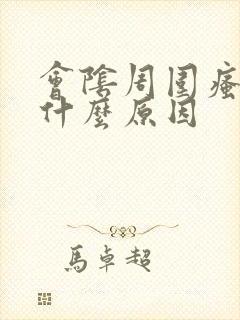 會陰周圍瘙
什麼原因
馬卓超